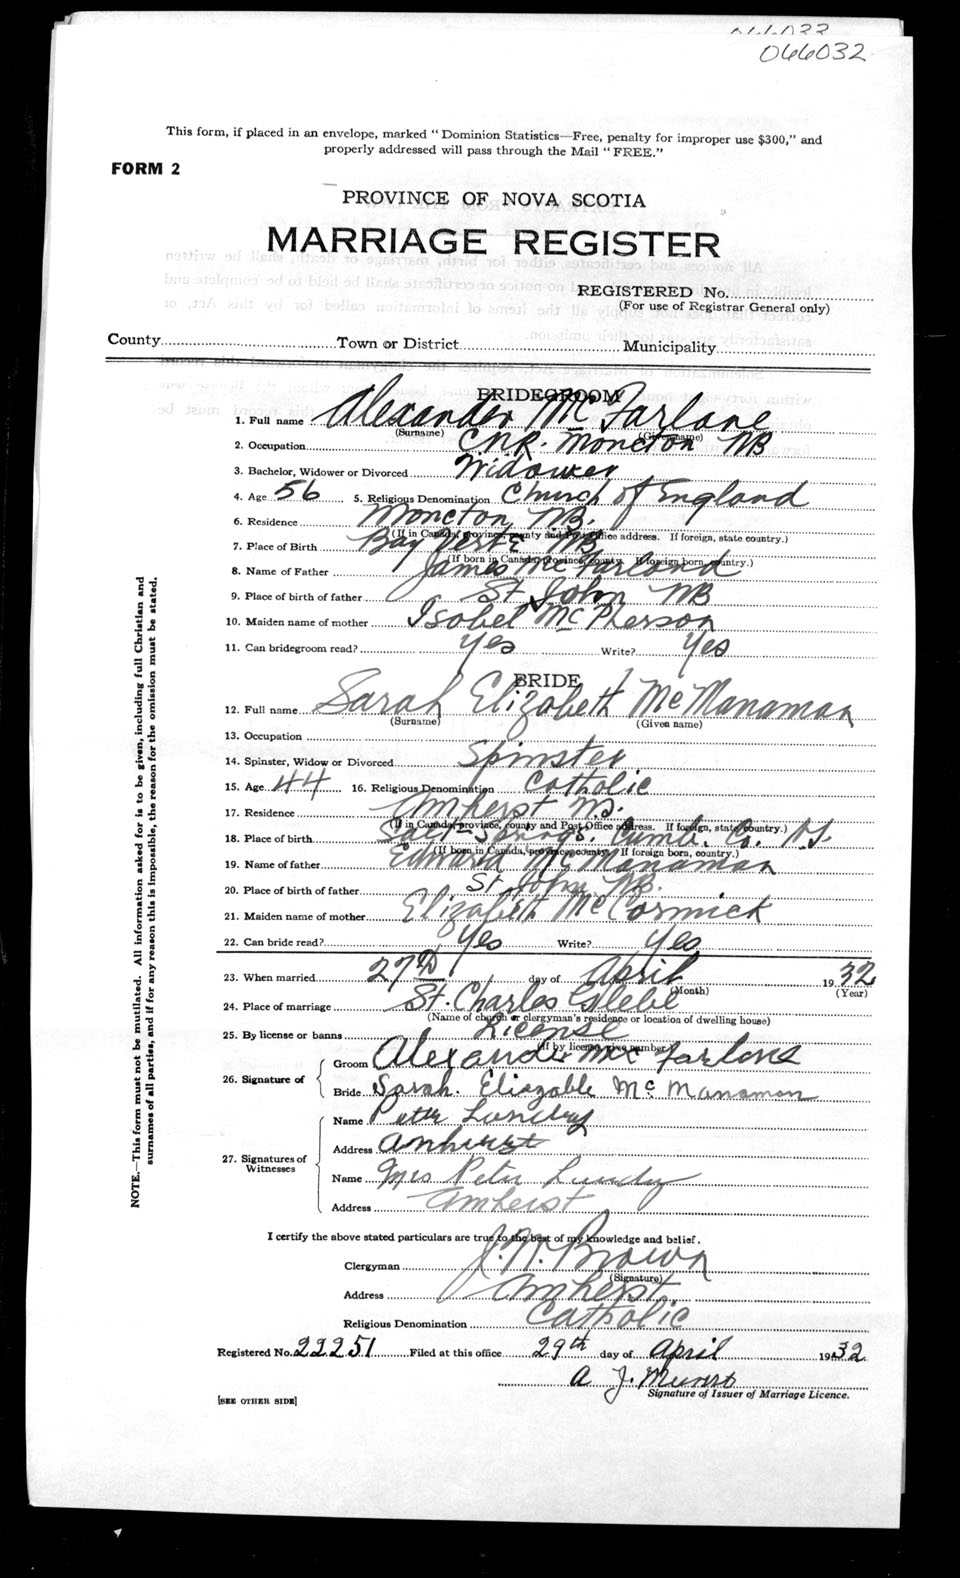 066033
066032
This form, if placed in an envelope, marked "Dominion Statistics—Free, penalty for improper use $300," and
properly addressed will pass through the Mail "FREE."
FORM 2
PROVINCE OF NOVA SCOTIA
MARRIAGE REGISTER
REGISTERED No.
(For use of Registrar General only)
County Town or District Municipality
BRIDEGROOM
1. Full name Alexander McFarlane
(Surname) (Given name)
2. Occupation CNR. Moncton NB
3. Bachelor, Widower or Divorced Widower
4. Age 56 5. Religious Denomination Church of England
6. Residence Moncton, NB.
(If in Canada, province, county and Post Office address. If foreign, state country.)
7. Place of Birth Bay Verte NB
(If born in Canada, province, county. If foreign born, country.)
8. Name of Father James McFarland
9. Place of birth of father St John NB
10. Maiden name of mother Isobel McPherson
11. Can bridegroom read? Yes Write? Yes
BRIDE
12. Full name Sarah Elizabeth McManaman
(Surname) (Given name)
13. Occupation
14. Spinster, Widow or Divorced Spinster
15. Age 44 16. Religious Denomination Catholic
17. Residence Amherst N.S.
(If in Canada, province, county and Post Office address. If foreign, state country.)
18. Place of birth Salt-Springs, Cumb. Co. N.S.
(If born in Canada, province, county. If foreign born, country.)
19. Name of father Edward McManaman
20. Place of birth of father St John NB.
21. Maiden name of mother Elizabeth McCormick
22. Can bride read? Yes Write? Yes
23. When married 27th day of April 1932
(Month) (Year)
24. Place of marriage St. Charles Glebe
(Name of church or clergyman's residence or location of dwelling house)
25. By license or banns License
(If by license, give number)
26. Signature of Groom Alexander McFarlane
Bride Sarah. Eliezable McManaman
27. Signatures of Witnesses
Name Peter Lundy
Address Amherst
Name Mrs Peter Lundy
Address Amherst
I certify the above stated particulars are true to the best of my knowledge and belief.
Clergyman J. N. Brown
(Signature)
Address Amherst
Religious Denomination Catholic
Registered No. 22251 Filed at this office 29th day of April 1932
A J. Munro
Signature of Issuer of Marriage Licence.
[SEE OTHER SIDE]
NOTE.—This form must not be mutilated. All information asked for is to be given, including full Christian and
surnames of all parties, and if for any reason this is impossible, the reason for the omission must be stated.